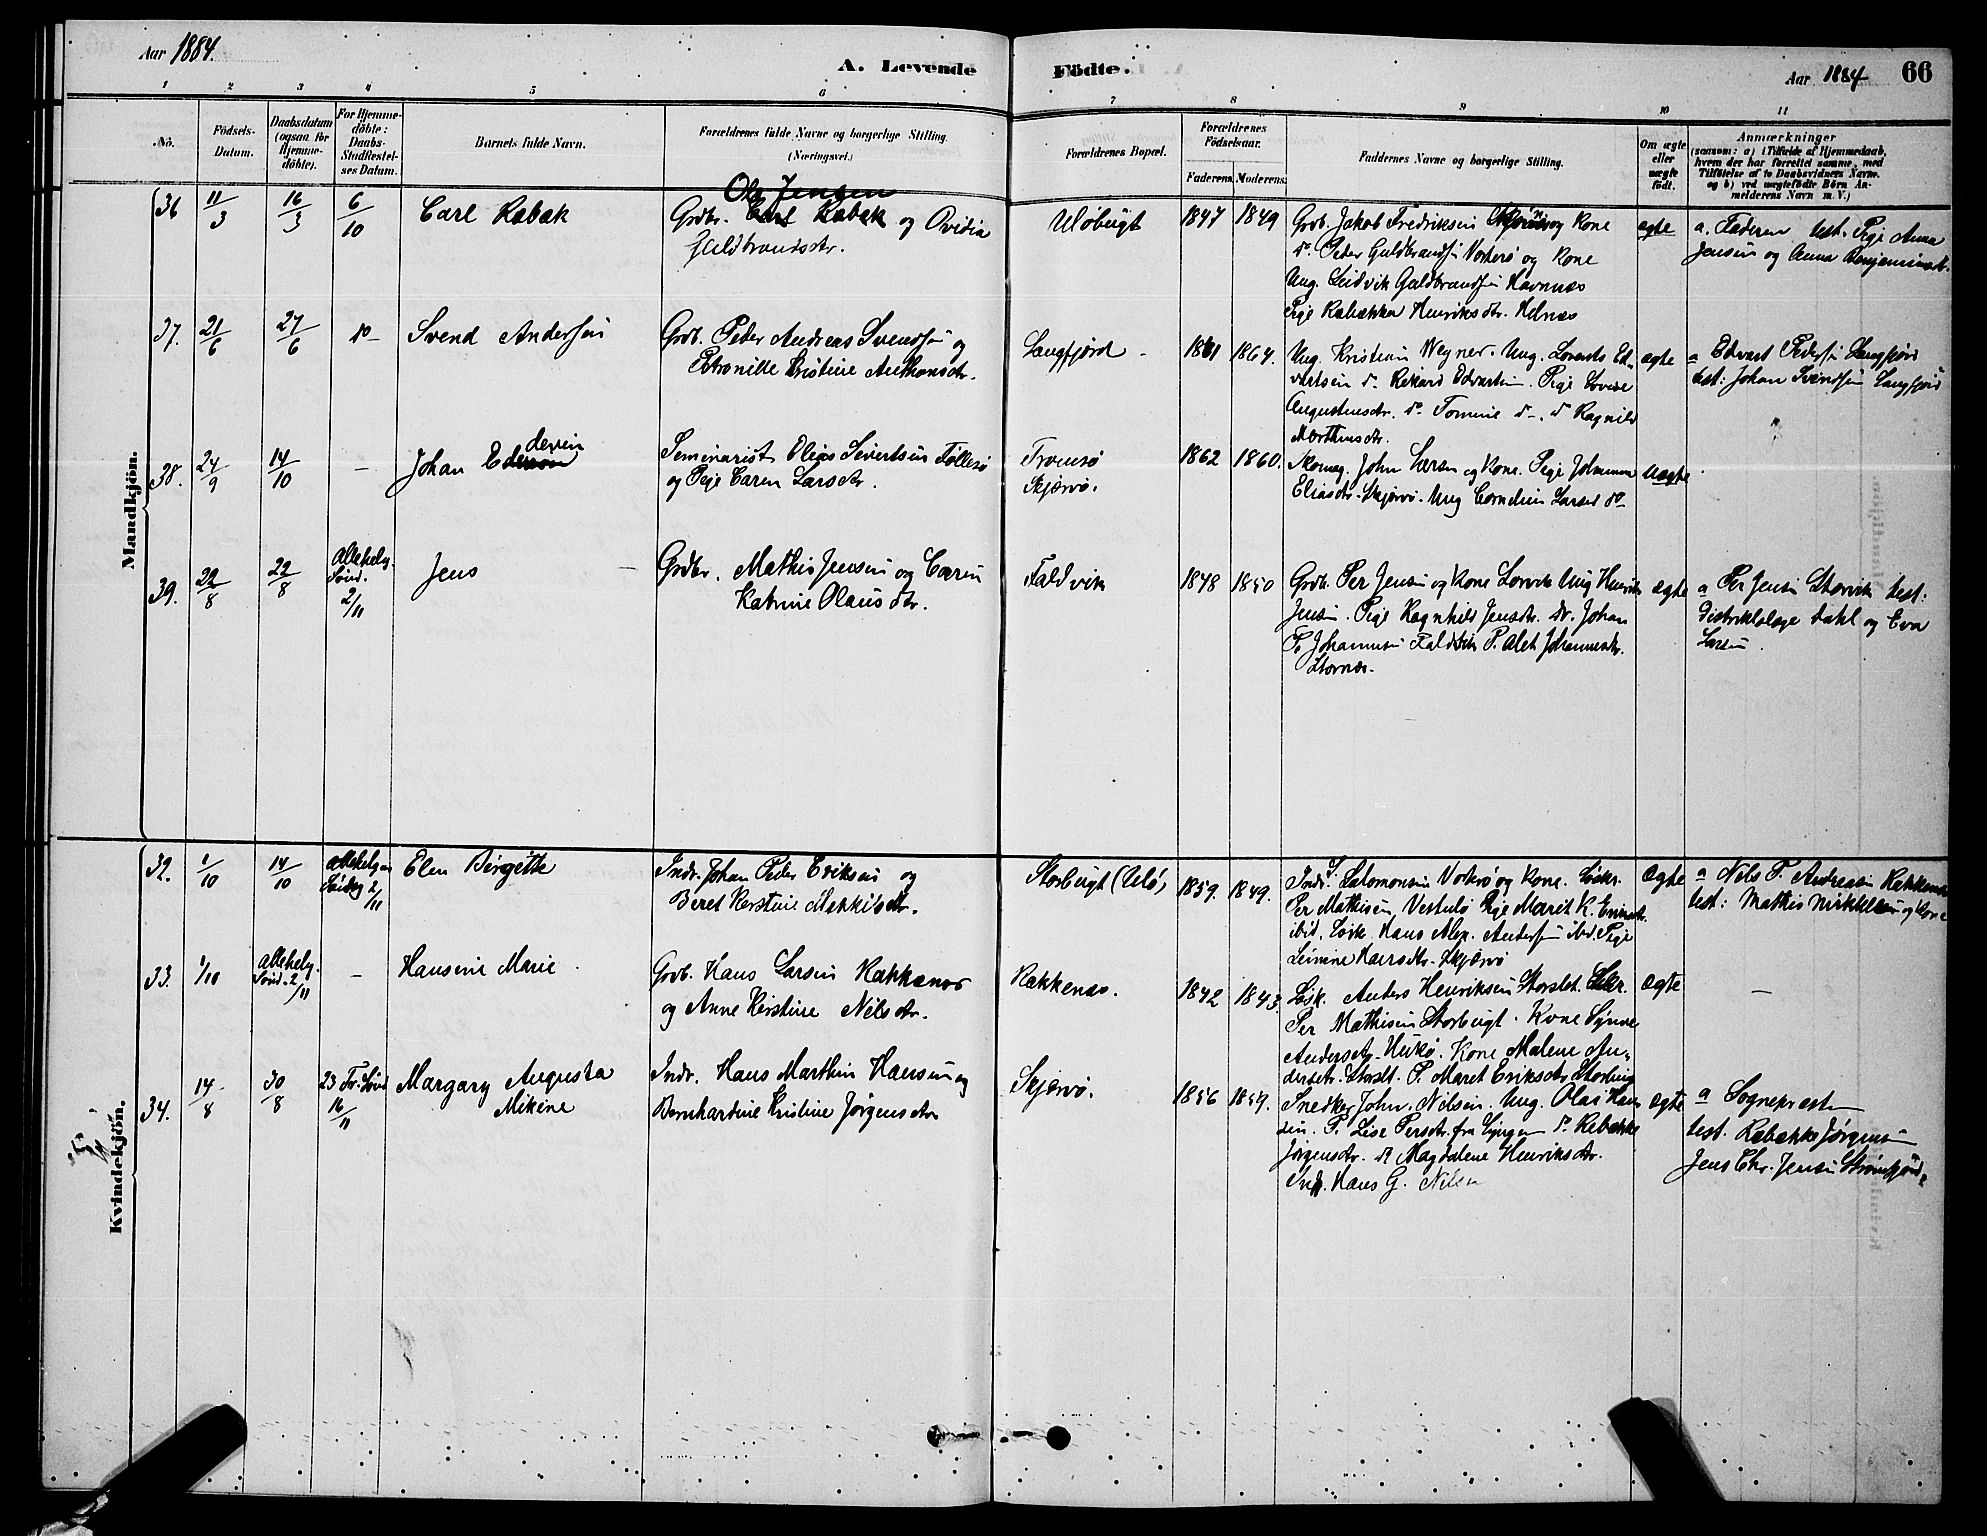 Aar 1884.
A. Levende Födte.
Aar 1884
66
1 2 3 4 5 6 7 8 9 10 11
No.
Födsels-
Datum.
Daabsdatum
(ogsaa for
Hjemme-
döbte).
For Hjemme-
döbte:
Daabs-
Stadfæstel-
ses Datum.
Barnets fulde Navn.
Forældrenes fulde Navne og borgerlige Stilling.
(Næringsvei.)
Forældrenes Bopæl.
Forældrenes
Födselsaar.
Faderens. Moderens.
Faddernes Navne og borgerlige Stilling.
Om ægte
eller
uægte
födt.
Anmærkninger
(saasom: a) i Tilfælde af Hjemmedaab,
hvem der har forrettet samme, med
Tilföielse af to Daabsvidners Navne,
og b) ved uægtefödte Börn An-
melderens Navn m. V.)
Mandkjön.
36 11/3 16/3 6/10 Carl Rabæk
Ole Jensen
Grdbr. Carl Rabæk og Ovidia
Guldbrandsdtr.
Uløbugt 1847 1849
Grdb. Jakob Fredriksen og Kone
do. Peder Guldbrandsen Vorterø og Kone
Ung. Ludvik Guldbrandsen Havnnæs
Pige Rabækka Henriksdtr. Helnæs
ægte
a. Faderen test. Pige Anna
Jensen og Anna Benjaminsdtr.
37. 21/6 27/6 do Svend Andersen
Grdb. Peder Andreas Svendsen og
Petronille Kristine Anthonsdtr.
Langfjord 1861 1864.
Ung. Kristian Wegner. Ung. Lorents Ed-
vartsen do. Rikard Edvartsen. Pige Lovise
Augustinusdtr. do. Tomine do. do Ragnild
Morthensdtr.
ægte
a Edvart Pedersen Langfjord
test: Johan Svendsen Langfjord
38. 24/9 14/10 — Johan
Seminarist Elias Sivertsen Føllesø
og Pige Caren Larsdtr.
Tromsø
Skjervø.
1862 1860.
Skomag. John Larsen og Kone. Pige Johanna
Eliasdtr. Skjervø. Ung Cornelius Larsen do
uægte
39. 22/8 22/8 Allehelg.
Sønd.
2/11
Jens
Grdbr. Mathis Jensen og Caren
Katrine Olausdtr.
Faldvik 1848 1850
Grdb. Per Jensen og Kone Ung Henrik
Jensen. Pige Ragnhild Jensdtr. do. Johan
P. Johannesen Faldvik P. Alet Johannesdtr.
Stornæs.
ægte
a Per Jensen Storvik test:
Distriktslæge Dahl og Eva
Larsen.
Kvindekjön.
32. 1/10 14/10 Allehelgen
Søndag 2/11
Elen Birgitte
Indr. Johan Peder Eriksen og
Beret Kerstine Mikkilsdtr.
Storbugt (Ulø) 1859. 1849.
Indr. Salomonsen og Kone. Løskr.
Per Mathisen Pige Marit K. Eriksdtr.
ibid. Løsk. Hans Alex. Andersen ibd. Pige
Leinine Skjærvø
Ægte
a Nils P. Andreasen Rakkenæs
test: Mathis Mikkelsen og Kone
33. 1/10 Allehelg.
Sønd. 2/11
— Hansine Marie
Grdb. Hans Larsen Rakkenæs
og Anne Kirstine Nilsdtr.
Rakkenæs. 1842 1843.
Løsk. Anders Henriksen Storslet. Løskr.
Per Mathisen Storbugt. Kone Synne
Andersdtr. Hukø. Kone Malene An-
dersdtr. Storslt. P. Maret Eriksdtr Storbugt
Ægte —
34. 14/8 30/8 23 Tr. Sønd
16/11
Margary Augusta
Mikine
Indr. Hans Marthin Hansen og
Bernhardine Kristine Jörgensdtr
Skjervø. 1856 1857.
Snedker John. Nilsen. Ung. Olaf Han-
sen. P. Lise Persdtr. fra Lyngen do Rebække
Jörgensdtr. do Magdalene Henriksdtr.
Indr. Hans G. Nilsen
ægte
a Sognepræsten
test. Rabække Jörgensen
Jens Chr. Jensen Strømfjord